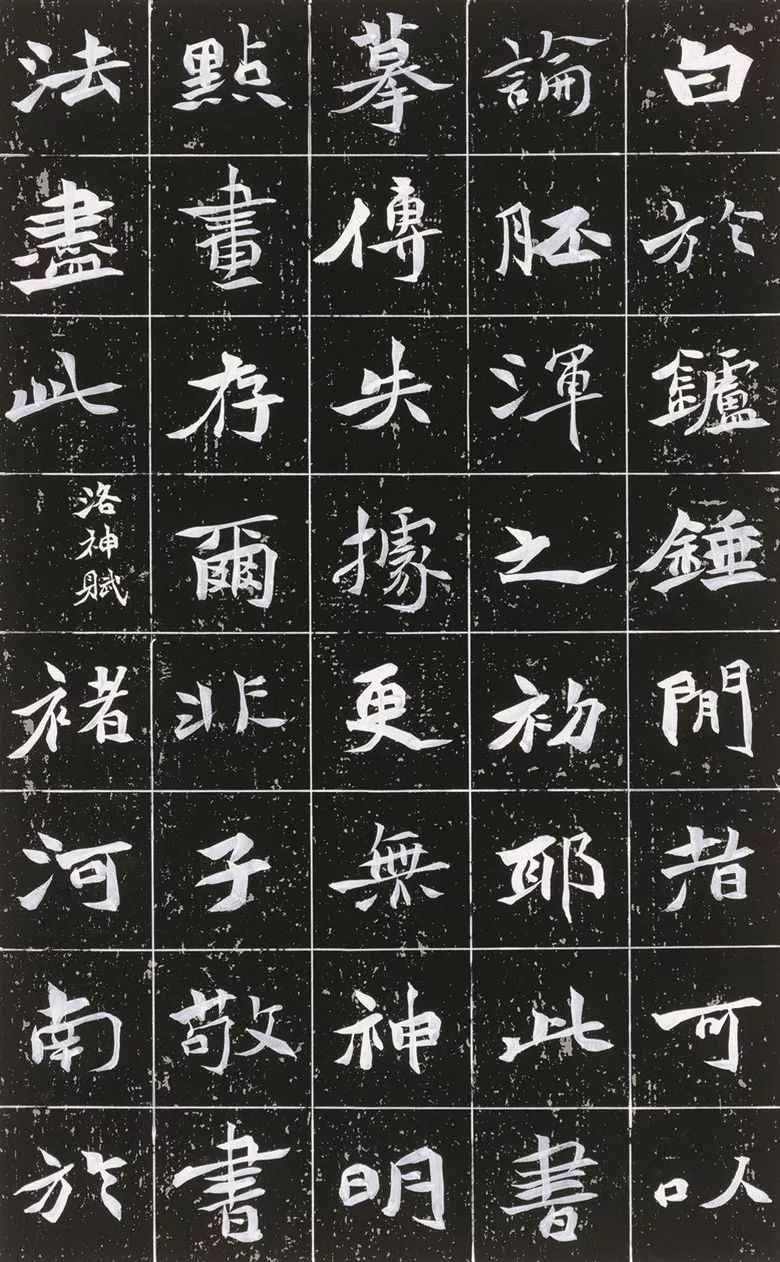 白於鑪錘閒者可㕥
論胚渾之初耶此書
摹傳失據更無神明
點畫存爾非子敬書
法盡此洛神賦褚河南於